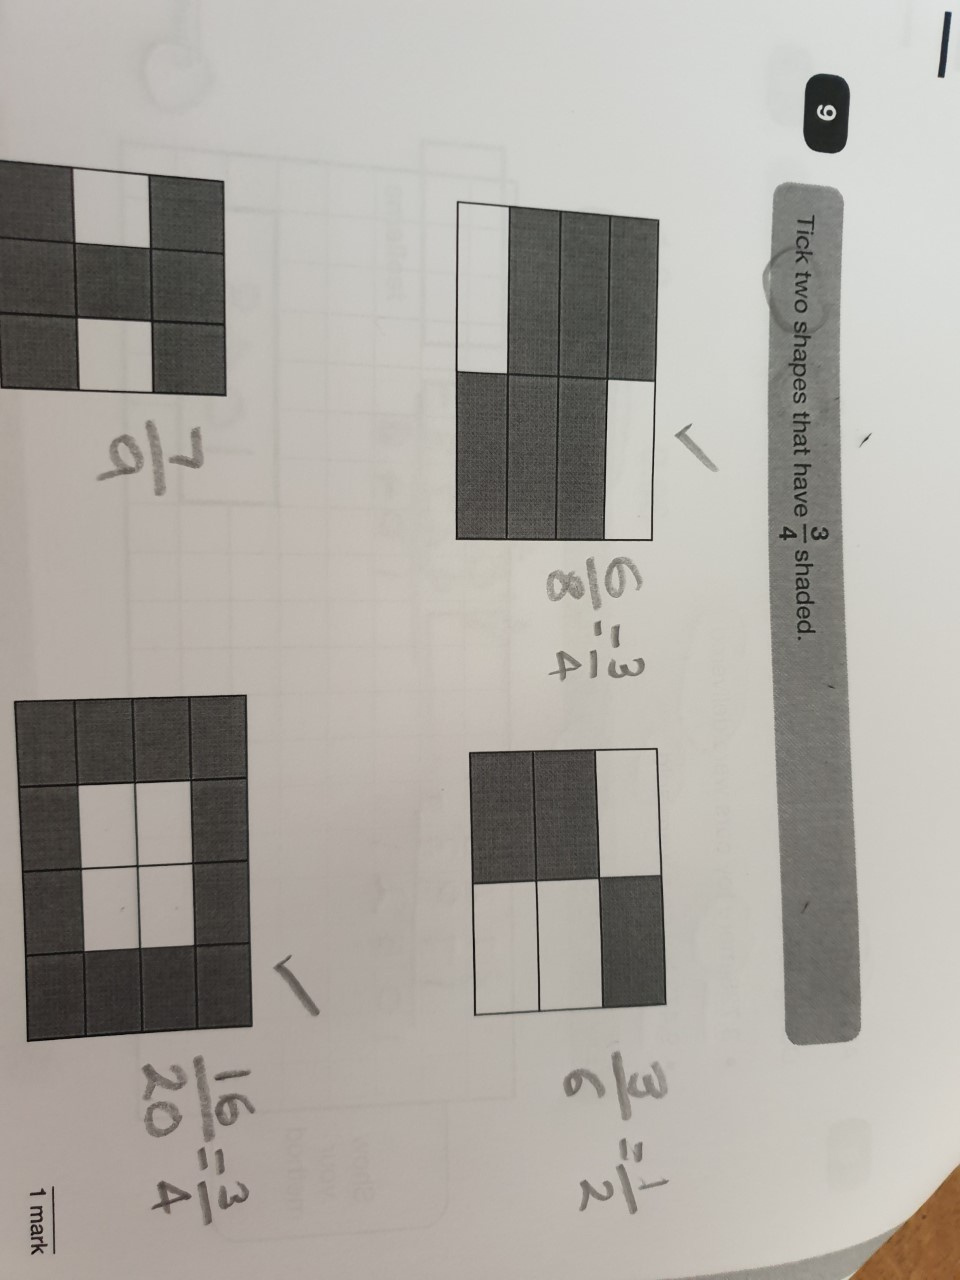 9
Tick two shapes that have 3/4 shaded.
✓
6/8 = 3/4
3/6 = 1/2
7/9
✓
16/20 = 3/4
1 mark